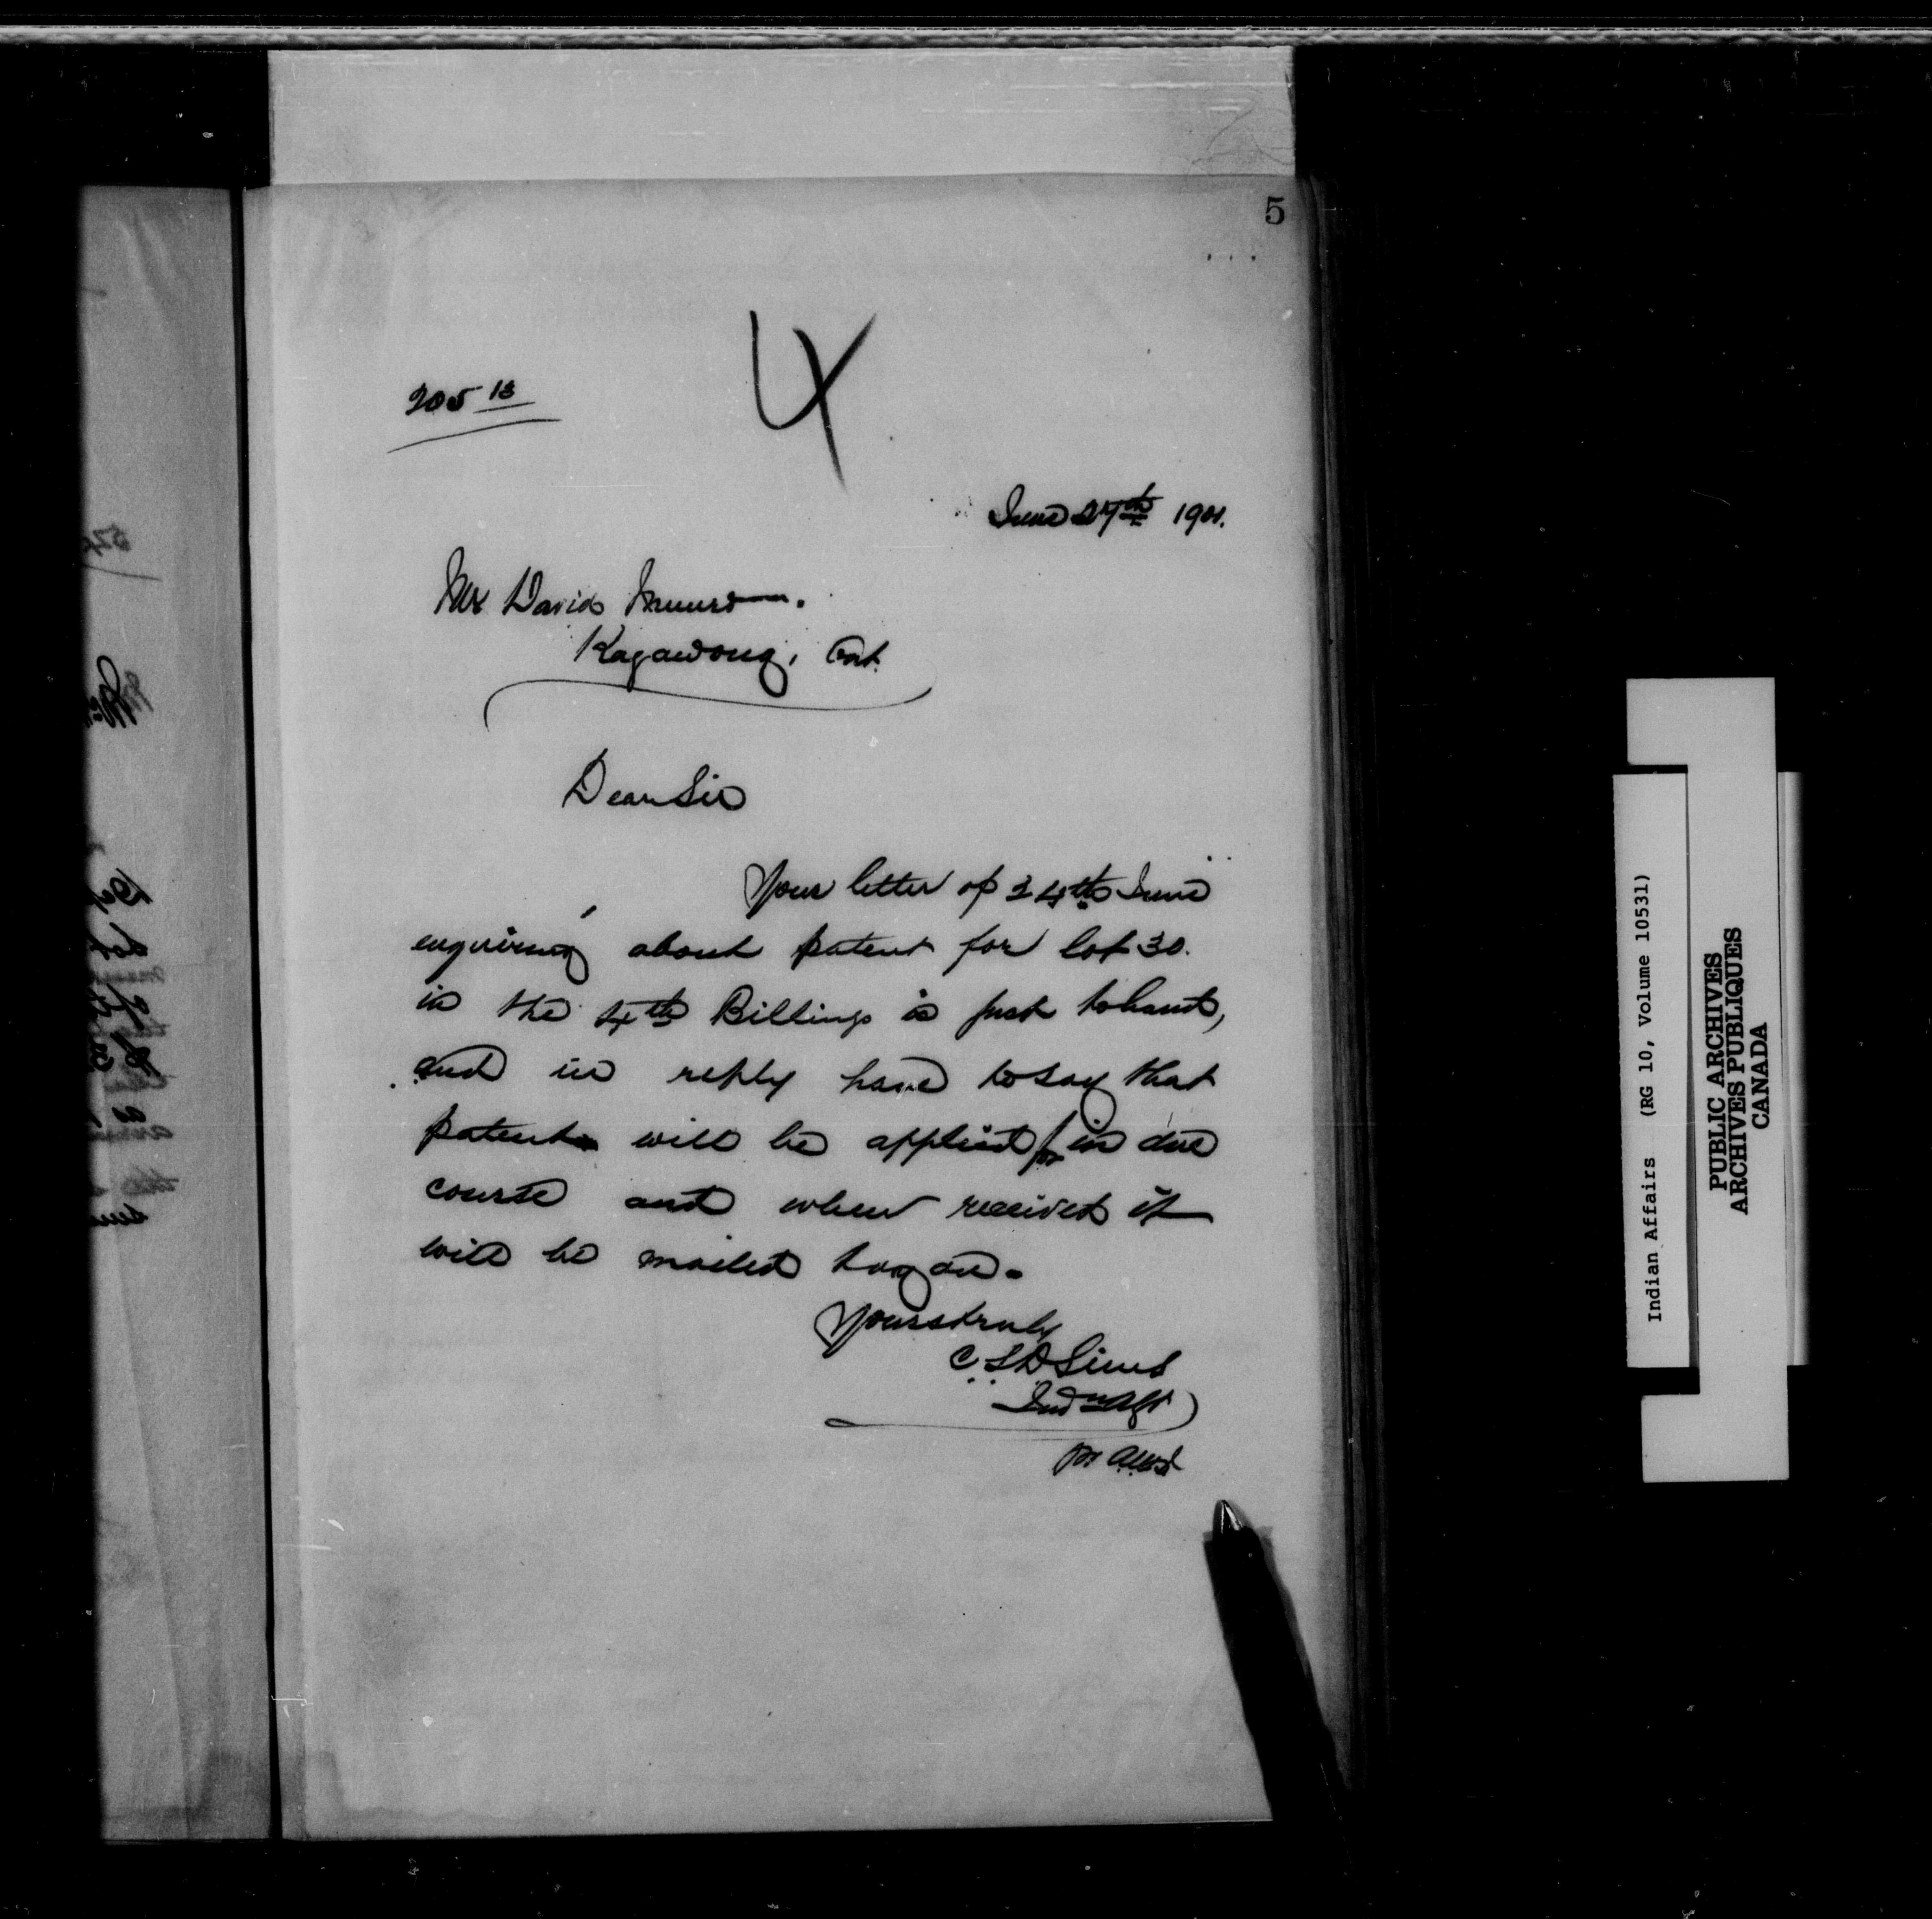 5
4
205 13
June 27th 1901.
Mr David Munro.
Kagawong, Ont.
Dear Sir
Your letter of 24th June
enquiring about patent for lot 30.
in the 4th Billings is just to hand,
and in reply have to say that
patent will be applied for in due
course and when received it
will be mailed to you.
Yours truly
C L D Sims
Ind n Agt
pr
Indian Affairs (RG 10, Volume 10531)
PUBLIC ARCHIVES
ARCHIVES PUBLIQUES
CANADA